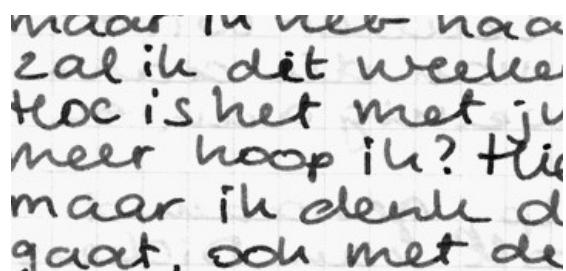 maar ik heb haa
zal ik dit weeke
Hoe is het met ju
meer hoop ik? Hie
maar ik denk d
gaat, ook met de